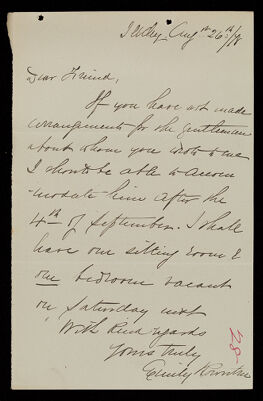 Ilkley, Augst 26th/78
Dear Friend,
If you have not made
arrangements for the gentleman
about whom you wrote to me
I should be able to accom
-modate him after the
4th of September. I shall
have one sitting room &
one bedroom vacant
on Saturday next
With kind regards
Yours truly
Emily